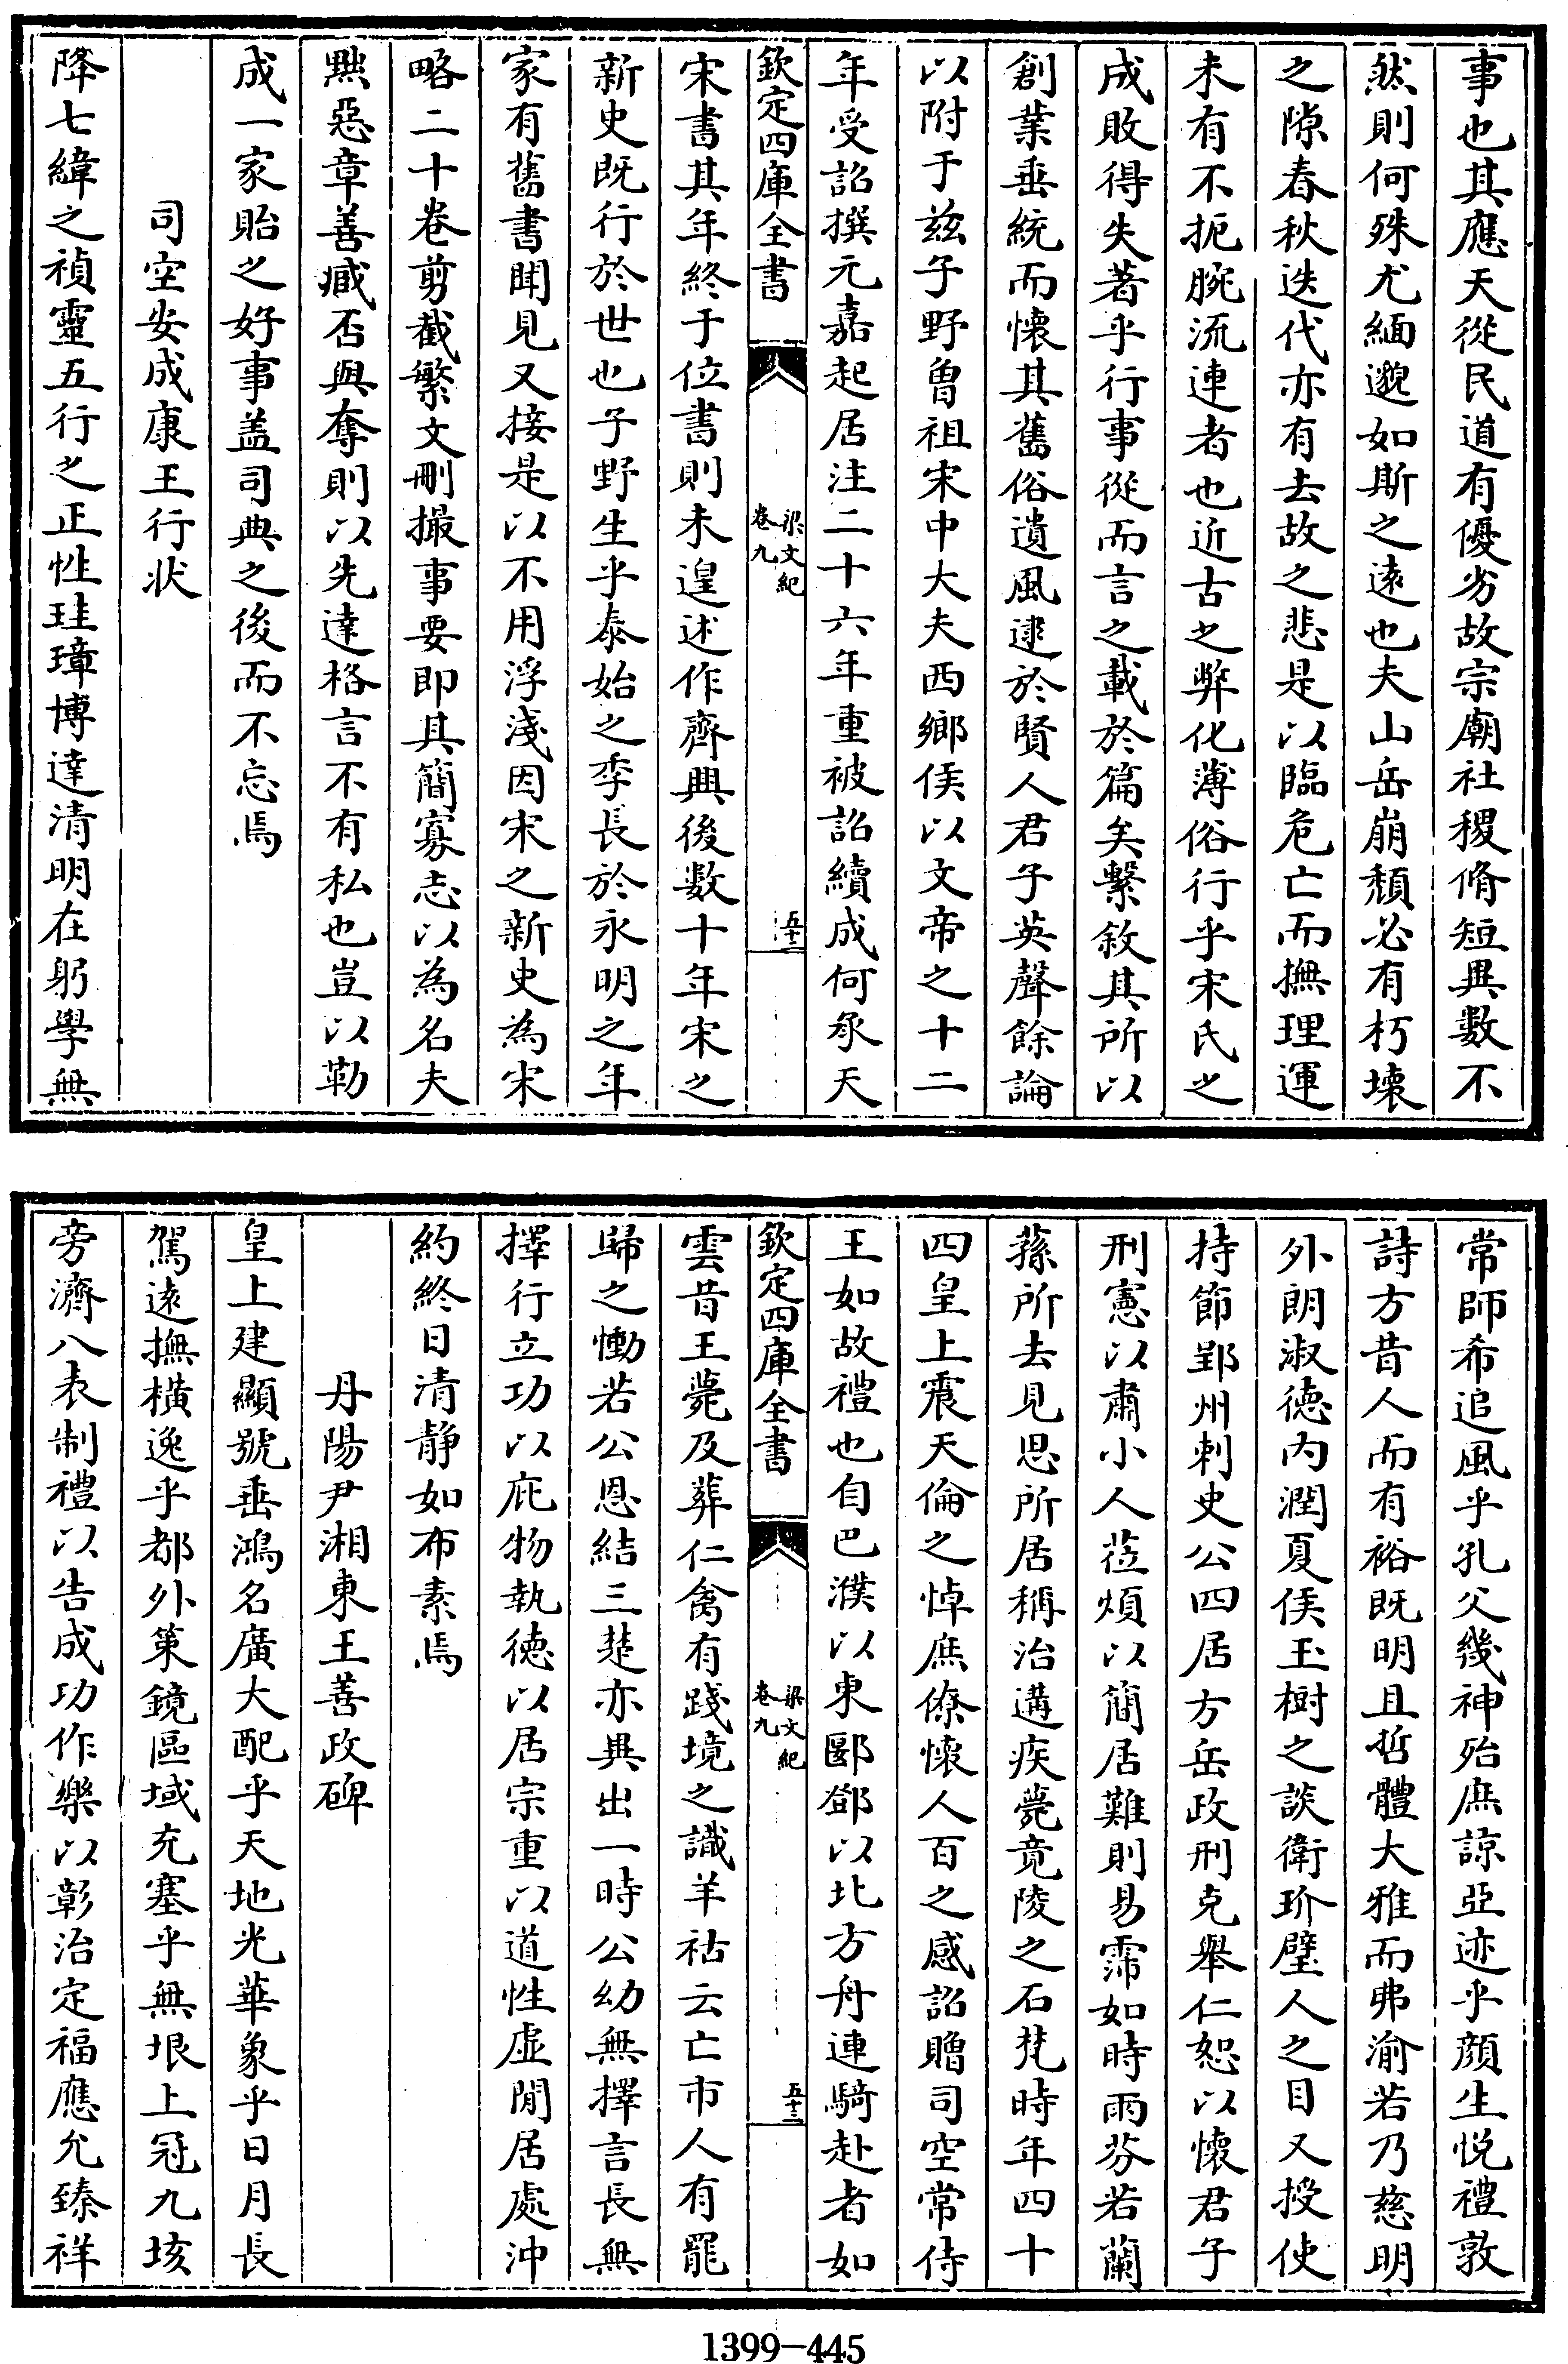 事也其應天從民道有優劣故宗廟社稷脩短異數不
然則何殊尤緬邈如斯之遠也夫山岳崩頹必有朽壊
之隙春秋迭代亦有去故之悲是以臨危亡而撫理運
未有不扼腕流連者也近古之弊化薄俗行乎宋氏之
成敗得失著乎行事從而言之載於篇矣繫敘其所以
創業垂統而懷其舊俗遺風逮於賢人君子英聲餘論
以附于茲子野曾祖宋中大夫西鄉侯以文帝之十二
年受詔撰元嘉起居注二十六年重被詔續成何承天
欽定四庫全書
梁文紀
卷九
五十二
宋書其年終于位書則未遑述作齊興後数十年宋之
新史既行於世也子野生乎泰始之季長於永明之年
家有舊書聞見又接是以不用浮淺因宋之新史為宋
略二十卷剪截繁文刪撮事要即其簡寡志以為名夫
黜惡章善臧否與奪則以先達格言不有私也豈以勒
成一家貽之好事盖司典之後而不忘焉
司空安成康王行状
降七緯之禎靈五行之正性珪璋博達清明在躬學無
常師希追風乎孔父幾神殆庶諒亞迹乎顔生悦禮敦
詩方昔人而有裕既明且哲體大雅而弗渝若乃慈明
外朗淑德内潤夏侯玉樹之談衛玠璧人之目又授使
持節郢州刺史公四居方岳政刑克舉仁恕以懷君子
刑憲以肅小人莅煩以簡居難則易霈如時雨芬若蘭
蓀所去見思所居稱治遘疾薨竟陵之石梵時年四十
四皇上震天倫之悼庶僚懷人百之感詔贈司空常侍
王如故禮也自巴濮以東郾鄧以北方舟連騎赴者如
欽定四庫全書
梁文紀
卷九
五十三
雲昔王薨及葬仁禽有踐境之識羊祜云亡市人有罷
歸之慟若公恩結三楚亦異出一時公幼無擇言長無
擇行立功以庇物執德以居宗重以道性虛閒居處沖
約終日清静如布素焉
丹陽尹湘東王善政碑
皇上建顯號垂鴻名廣大配乎天地光華象乎日月長
駕遠撫橫逸乎都外策鏡區域充塞乎無垠上冠九垓
旁濟八表制禮以告成功作樂以彰治定福應允臻祥
1399-445